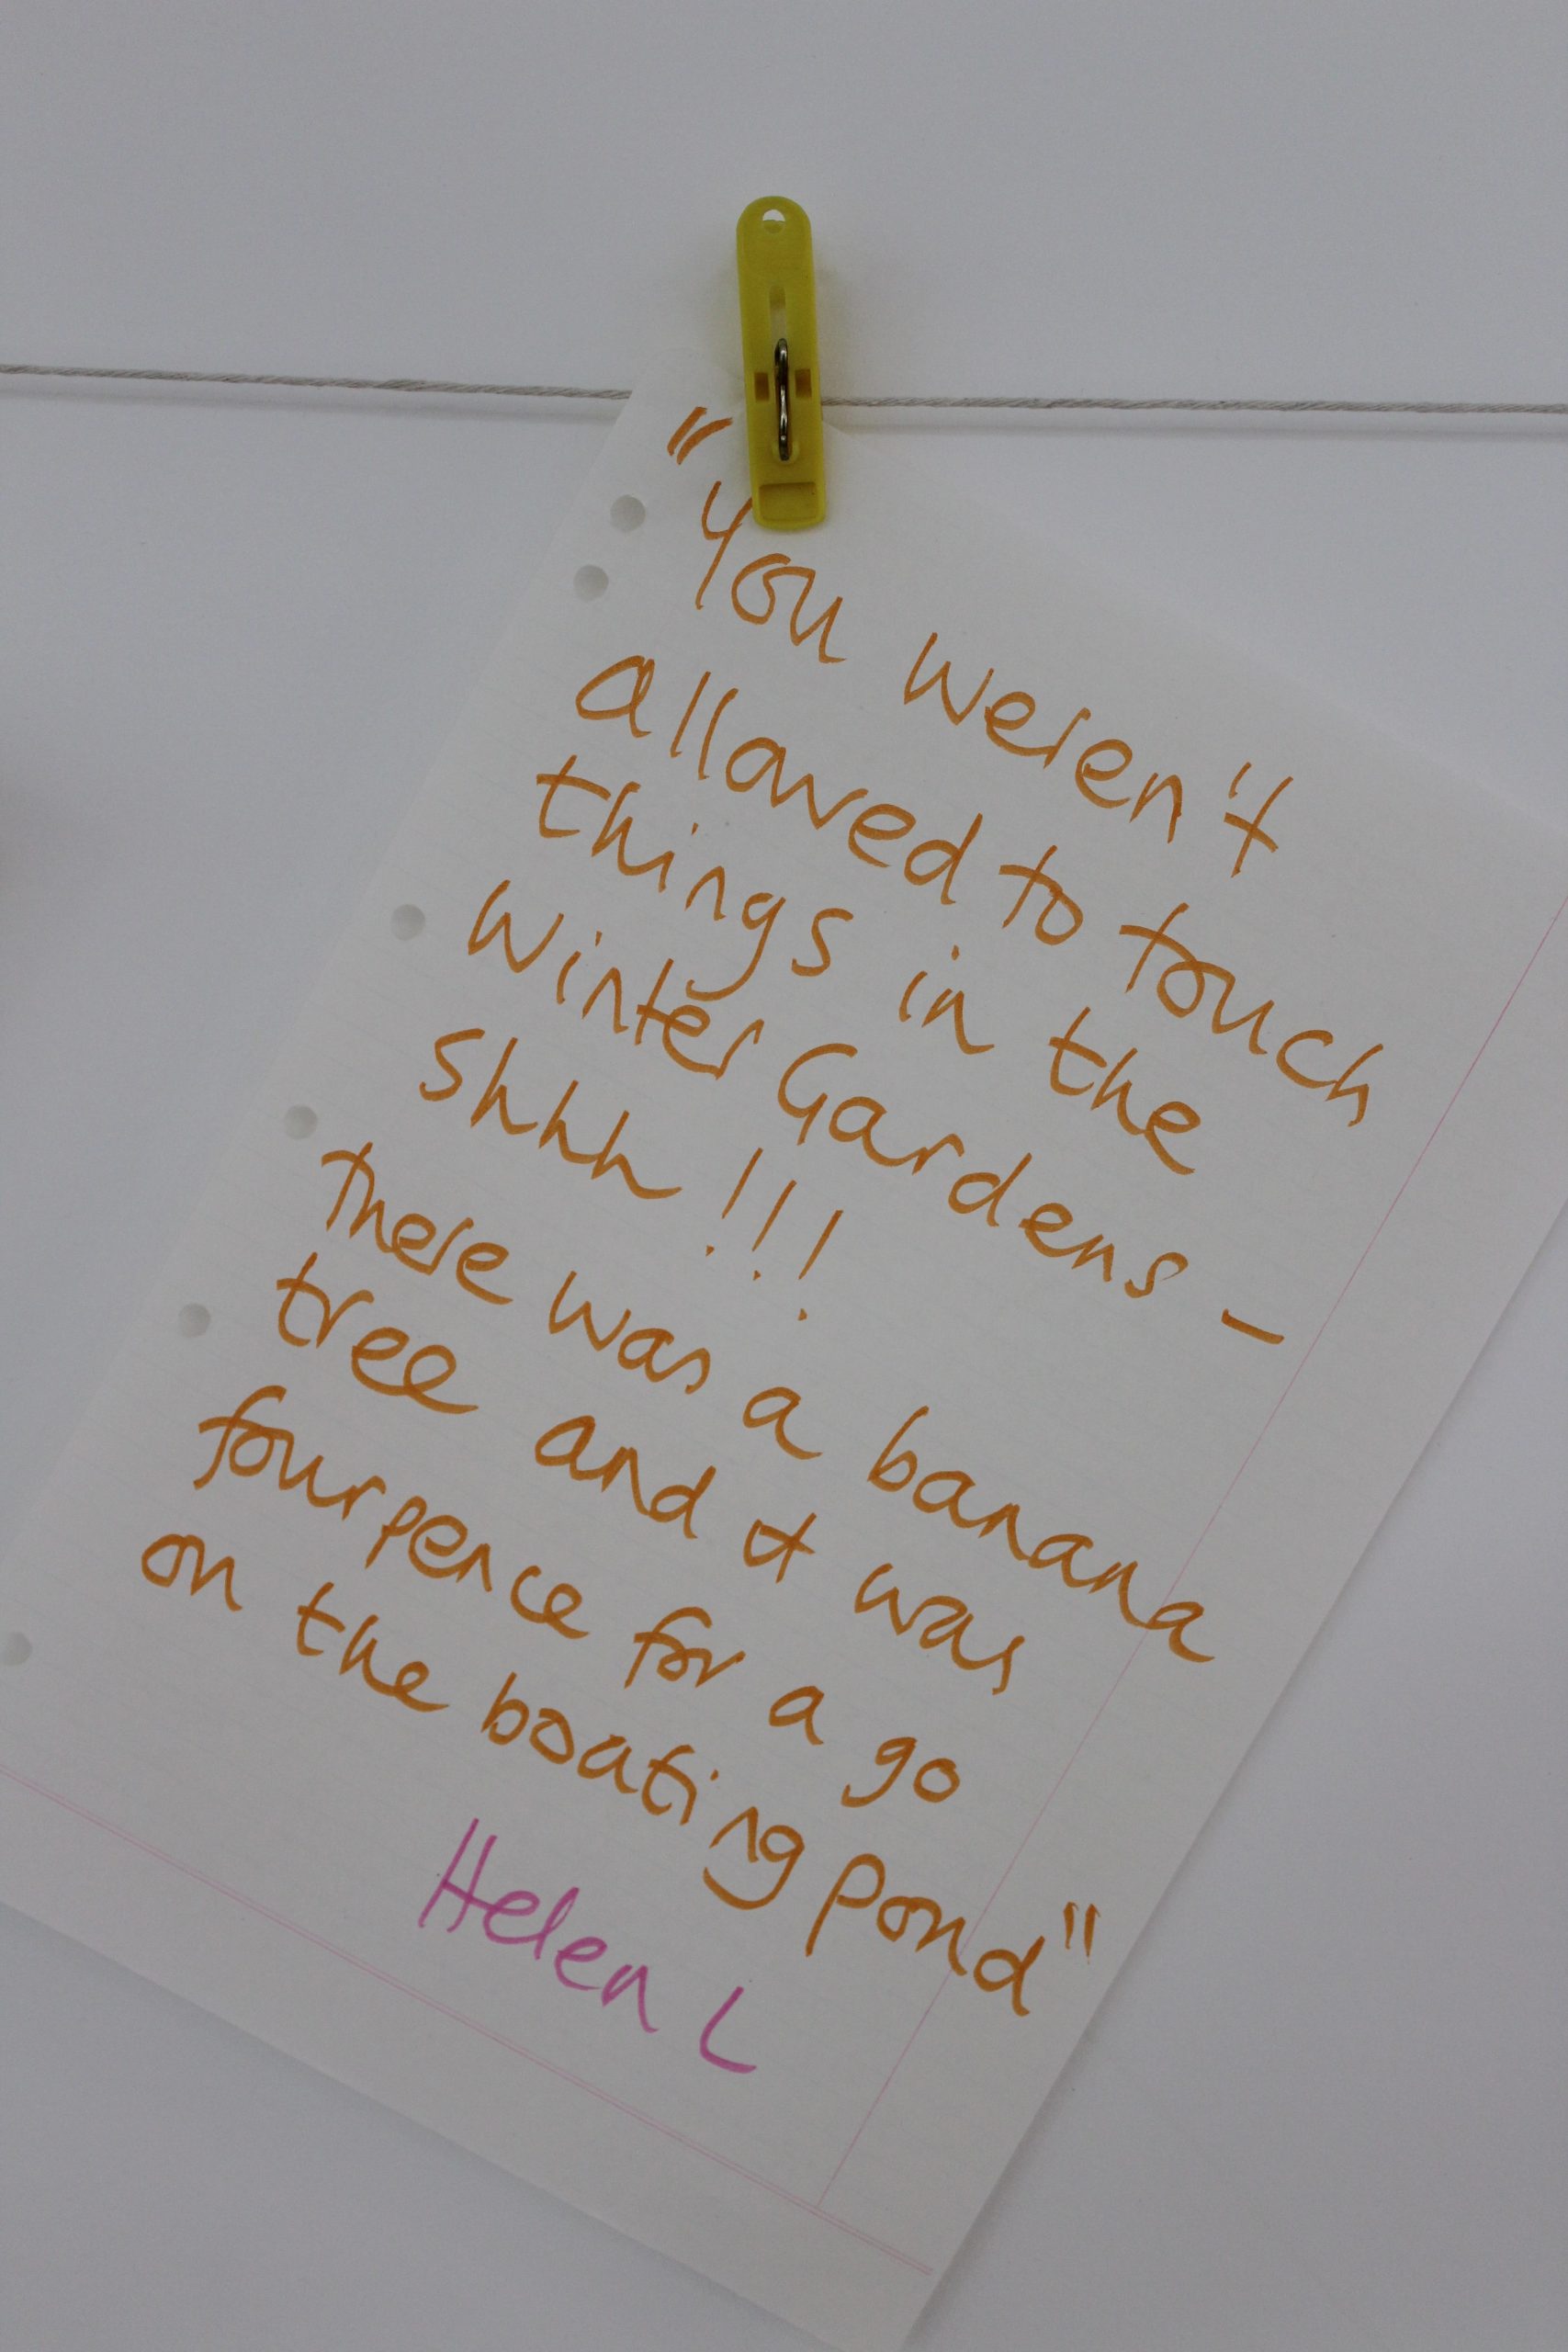 "You weren't
allowed to touch
things in the
Winter Gardens –
shhh !!!
There was a banana
tree and it was
fourpence for a go
on the boating pond"
Helen L